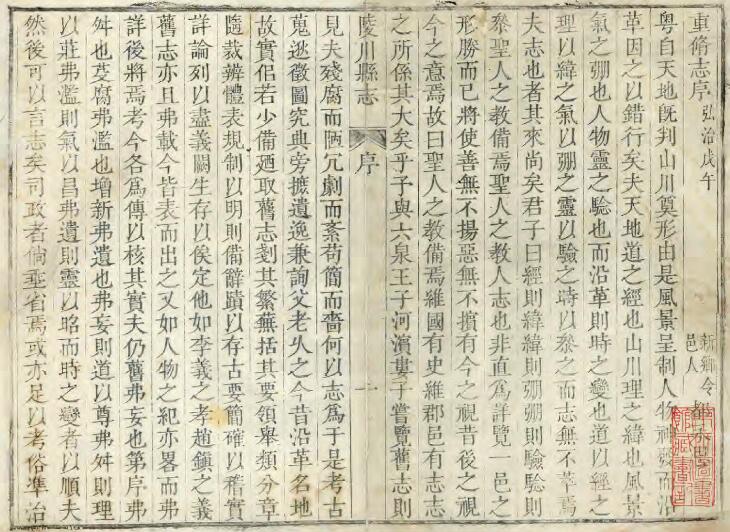 重脩志序弘治戊午
新鄉令
邑人
粵自天地旣判山川奠形由是風景呈制人物
革因之以錯行矣夫天地道之經也山川理之緯也風景
氣之弸也人物靈之驗也而沿革則時之變也道以經之
理以緯之氣以弸之靈以驗之時以叅之而志無不萃焉
夫志也者其來尚矣君子曰經則緯緯則弸弸則驗驗則
叅聖人之教備焉聖人之教人志也非直爲詳覽一邑之
形勝而已將使善無不揚惡無不擯有今之視昔後之視
今之意焉故曰聖人之教備焉維國有史維郡邑有志志
之所係其大矣乎予與六泉王子河濱婁子嘗覽舊志則
陵川縣志
序
一
見夫殘腐而陋冗劇而紊苟簡而嗇何以志爲于是考古
蒐逖徵圖究典旁摭遺逸兼詢父老乆之今昔沿革名地
故實侣若少備廼取舊志剗其繁蕪括其要領舉類分章
隨裁辨體表規制以明則備辭蹟以存古要簡確以稽實
詳論列以盡義闕生存以俟定他如李義之孝趙鎭之義
舊志亦且弗載今皆表而出之又如人物之紀亦畧而弗
詳後將焉考今各爲傳以核其實夫仍舊弗妄也第序弗
舛也芟腐弗濫也增新弗遺也弗妄則道以尊弗舛則理
以莊弗濫則氣以昌弗遺則靈以昭而時之變者以順夫
然後可以言志矣司政者倘垂省焉或亦足以考俗準治